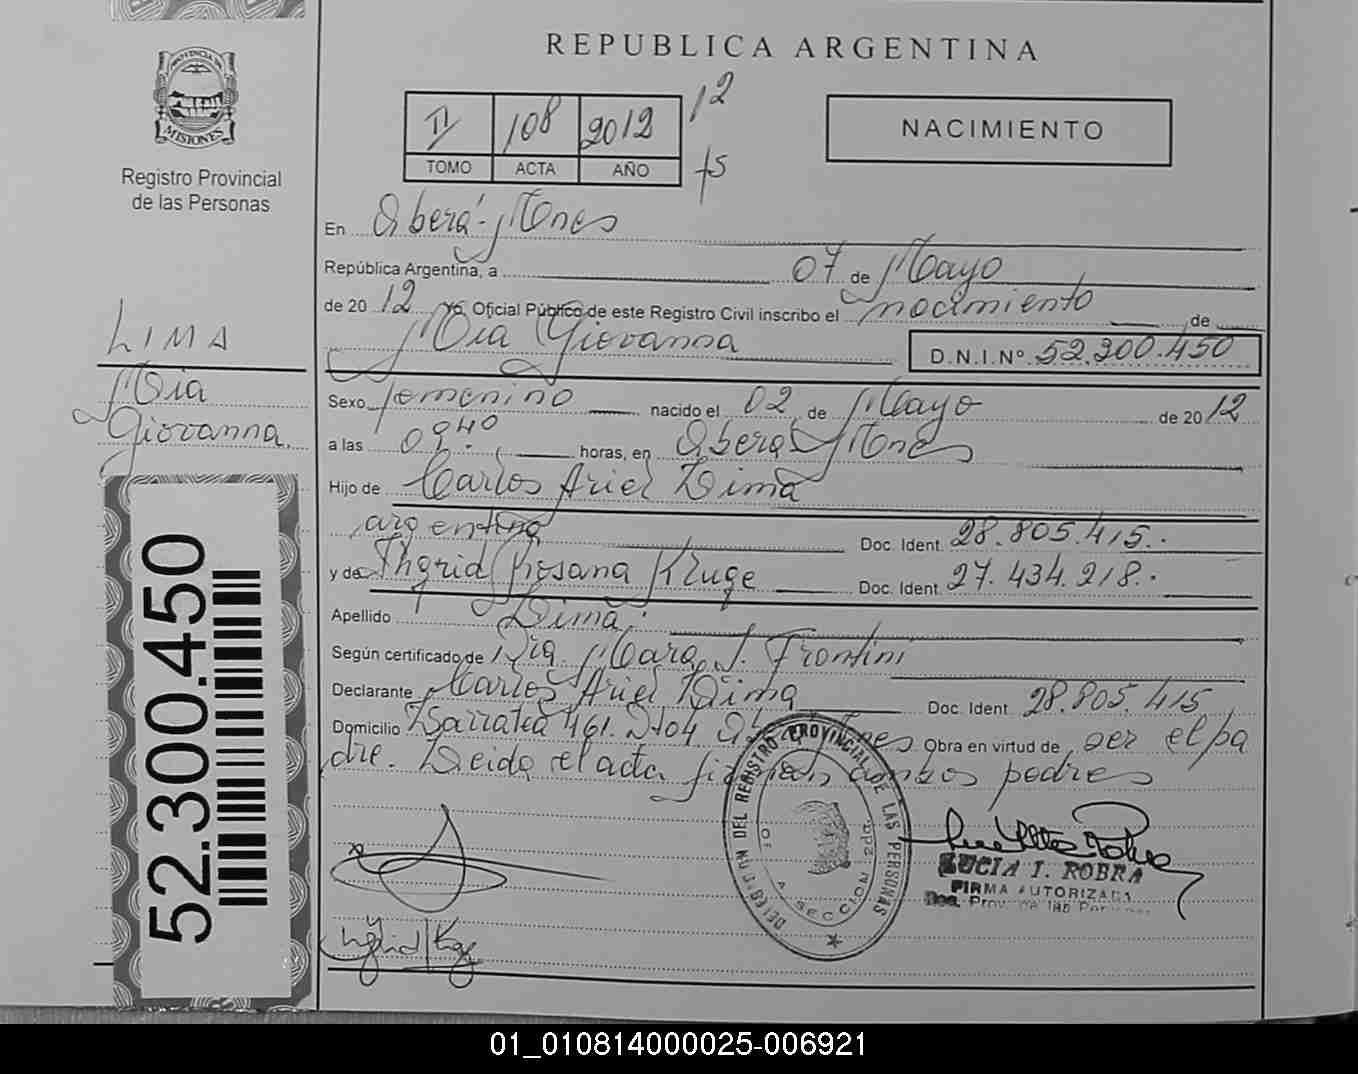 REPUBLICA ARGENTINA
PROVINCIA DE
MISIONES
Registro Provincial
de las Personas
II 108 2012 12
TOMO ACTA AÑO fs
NACIMIENTO
En Oberá - Mnes
República Argentina, a 07 de Mayo
de 2012 Yo, Oficial Público de este Registro Civil inscribo el nacimiento de
Mia Giovanna D.N.I.Nº 52.300.450
LIMA
Mia
Giovanna.
Sexo femenino nacido el 02 de Mayo de 2012
a las 09.40 horas, en Oberá Mnes
Hijo de Carlos Ariel Lima
argentino Doc. Ident. 28.805.415.
y de Ingrid Rosana Kruge Doc. Ident. 27.434.218.
Apellido Lima.
Según certificado de Dra. Mara J. Frontini
Declarante Carlos Ariel Lima Doc. Ident. 28.805.415
Domicilio Barratea 461. Dto4 Mnes Obra en virtud de ser el pa
dre. Leida el acta firman ambos padres
52.300.450
DELEGACION DEL REGISTRO PROVINCIAL DE LAS PERSONAS
SECCION 2DA.
LUCIA I. ROBRA
FIRMA AUTORIZADA
Reg. Prov. de las Personas
Ingrid Kruge
01_010814000025-006921